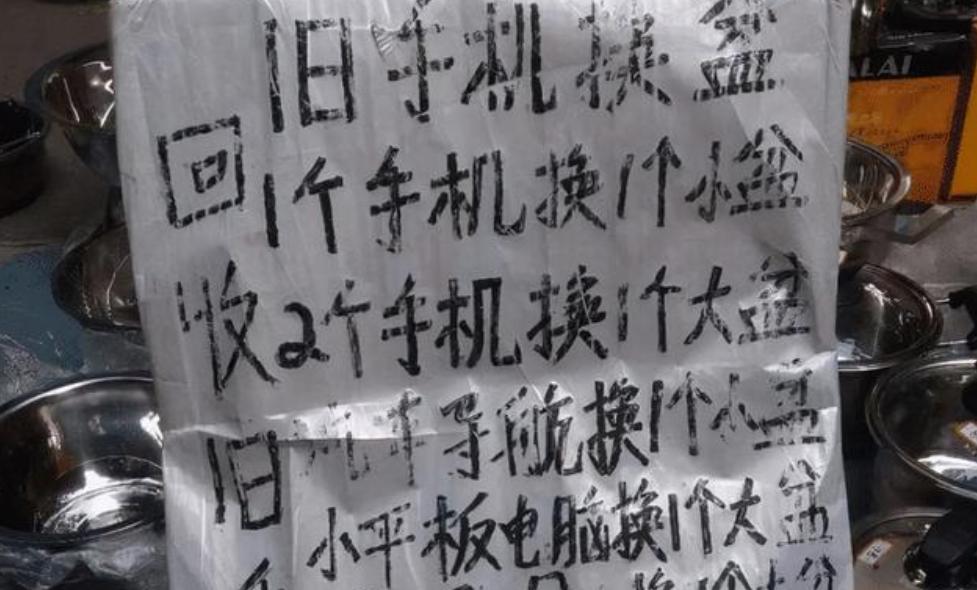 旧手机换盆
1个手机换1个小盆
2个手机换1个大盆
汽车导航换1个小盆
小平板电脑换1个大盆
回收旧手
LAI